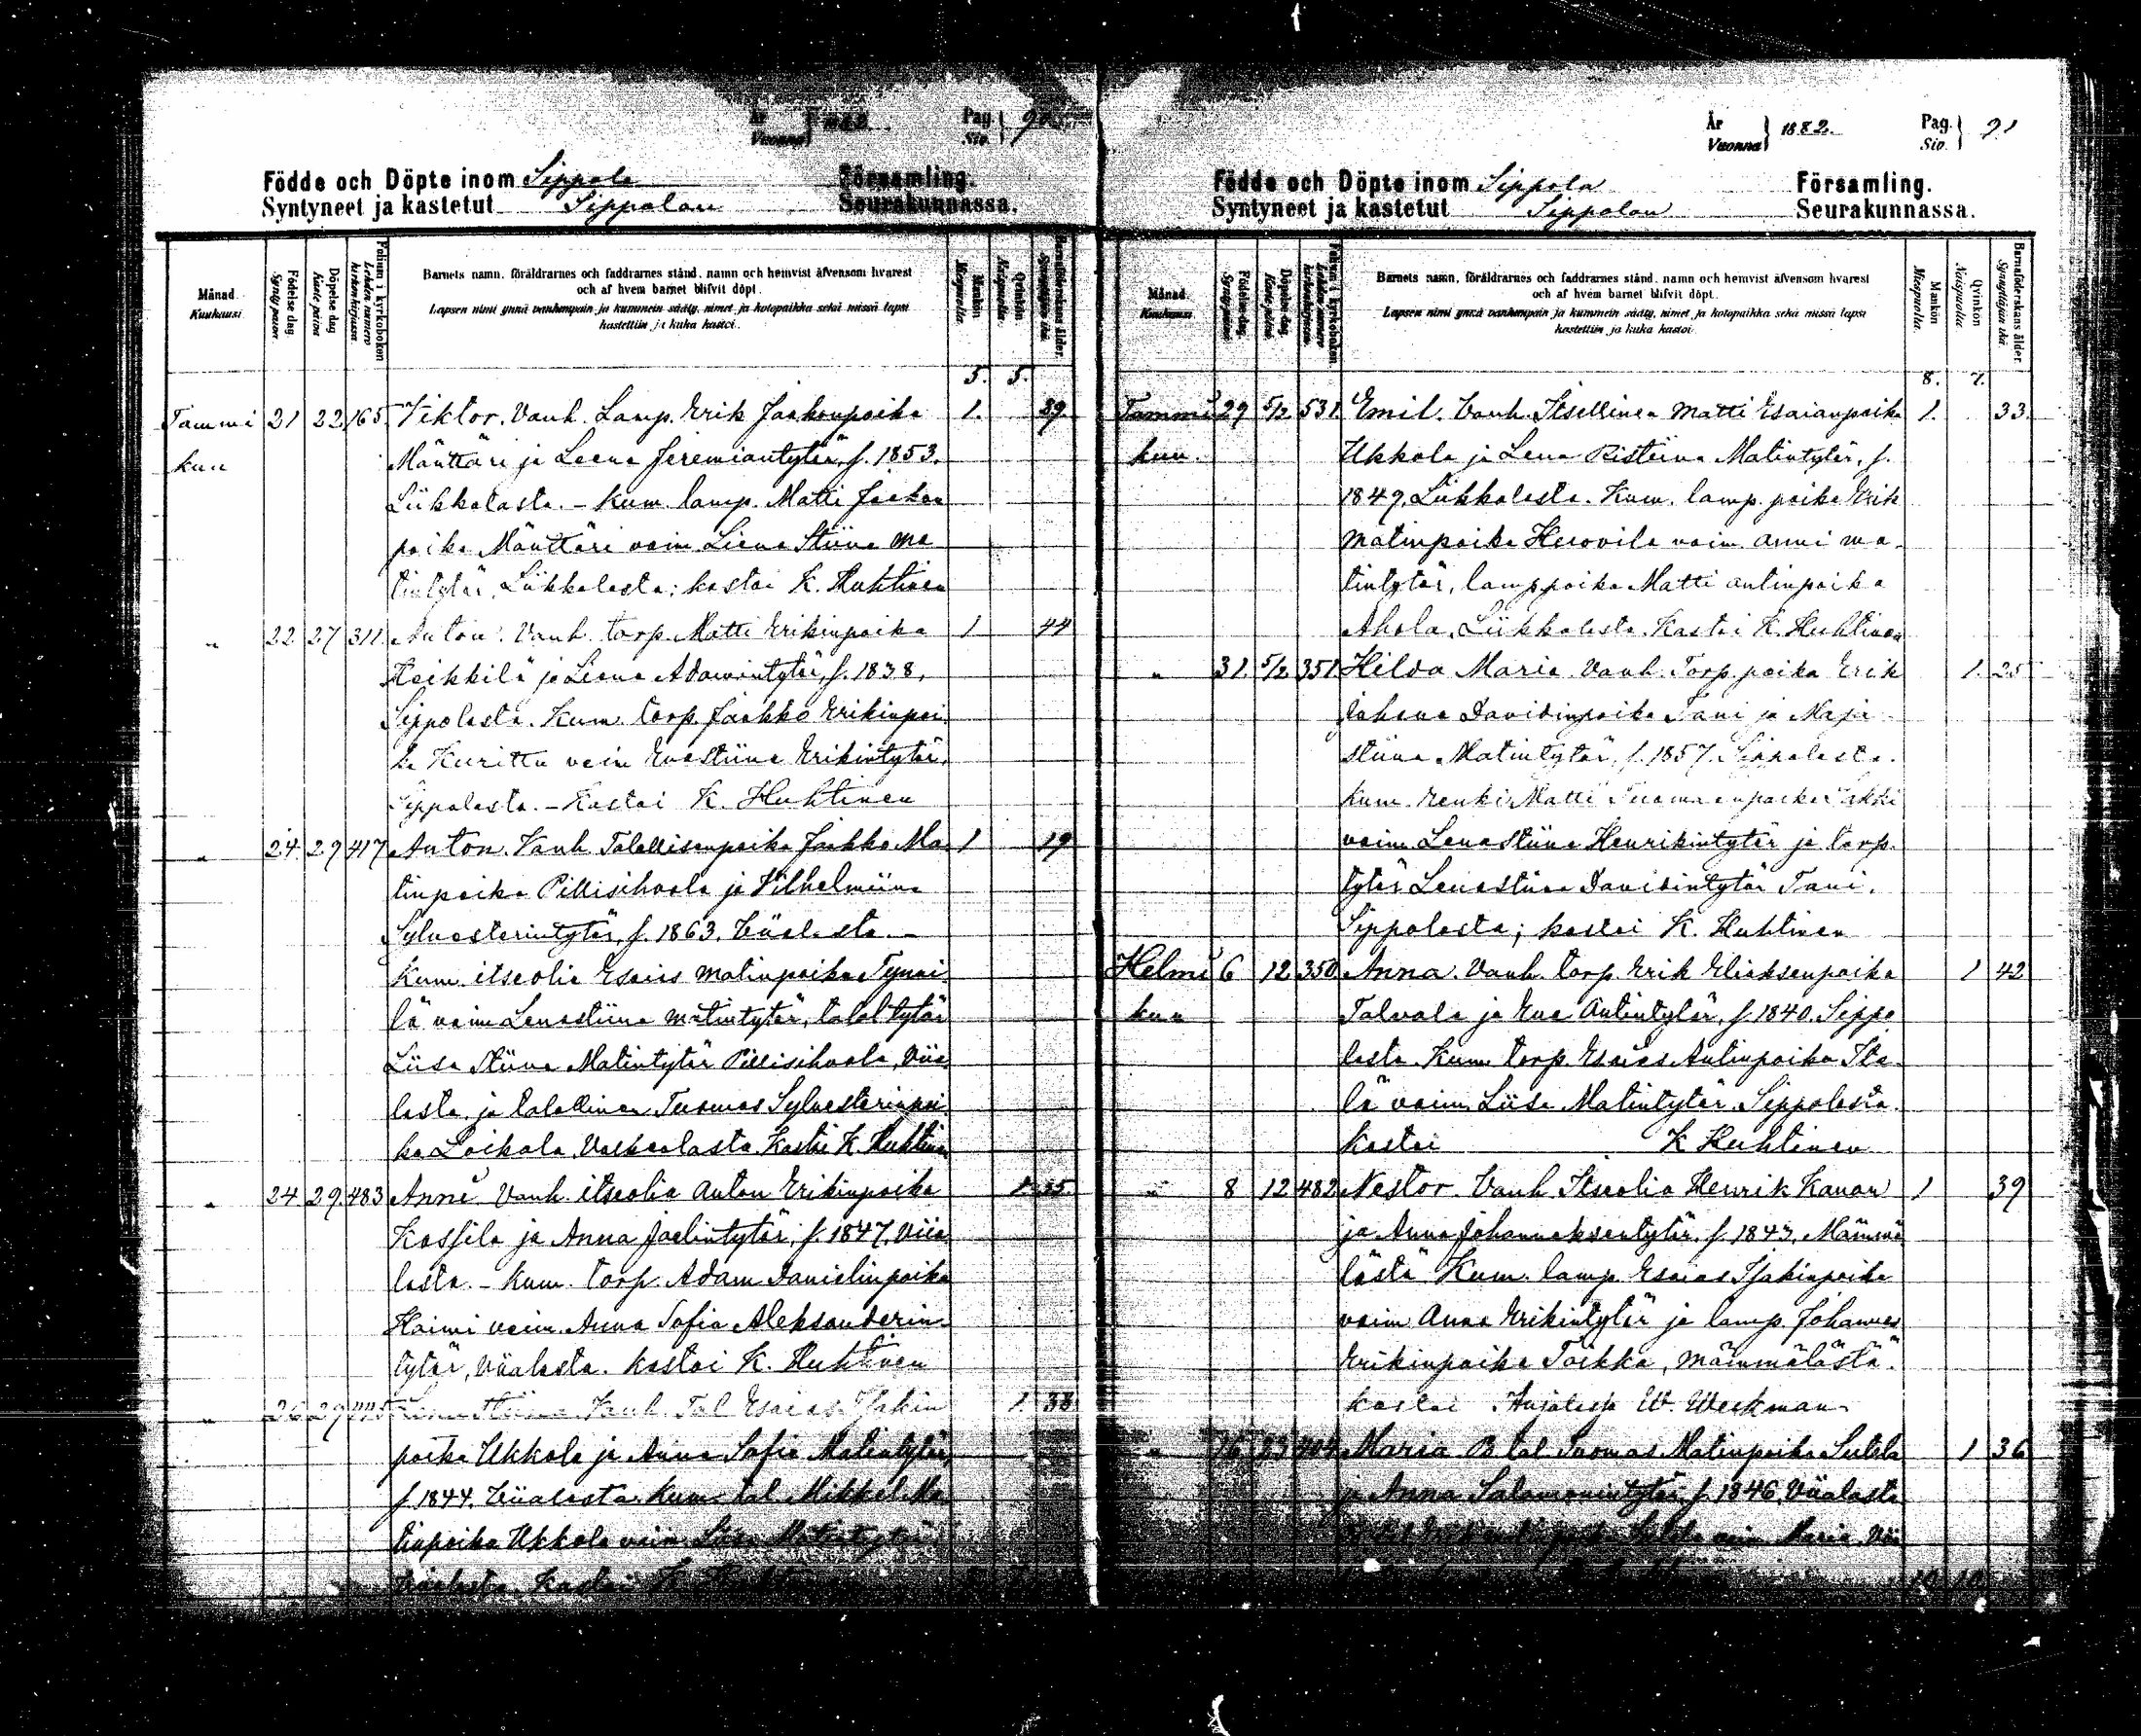 År Vuonna 1882. Pag. Siv. 90
Födde och Döpte inom Sippola Församling.
Syntyneet ja kastetut Sippolan Seurakunnassa.
Månad. Kuukausi
Födelse dag. Synty päivä
Döpelse dag Kaste päivä
Folium i kyrkoboken Lehden numero kirkonkirjassa.
Barnets namn, föräldrarnes och faddrarnes stånd, namn och hemvist äfvensom hvarest
och af hvem barnet blifvit döpt.
Lapsen nimi ynnä vanhempain ja kummein sääty, nimet ja kotopaikka sekä missä lapsi
kastettiin ja kuka kastoi.
Mankön Miespuolia.
Qvinkön Naispuolia.
Barnaföderskans ålder. Synnyttäjän ikä.
5. 5.
Tammi 21 22 165 Viktor. Vanh. Lamp. Erik Jaakonpoika 1. 29.
kuu Mänttäri ja Leena Jeremiantytär, s. 1853.
Liikkalasta. - Kum. lamp. Matti Jaakon
poika Mänttäri vaim. Liena Stiina Ma
tintytär, Liikkalasta; kastoi K. Huhtinen
" 22 27 311 Anton. Vanh. torp. Matti Erikinpoika 1 44
Heikkilä ja Liena Adamintytär, s. 1838,
Sippolasta. Kum. torp. Jaakko Erikinpoi
ka Kurittu vaim Evastiina Erikintytär,
Sippolasta. - Kastoi K. Huhtinen
" 24. 29 417 Anton. Vanh Talollisenpoika Jaakko Ma 1 19
tinpoika Pillisihvola ja Vilhelmiina
Sylvesterintytär, s. 1863. Viialasta. -
Kum. itseolia Esaias Matinpoika
lä vaim Lenastiina Matintytär, talol tytär
Liisa Stiina Matintytär Pillisihvola, Viia
lasta, ja talollinen Tuomas Sylvesterinpoi
ka Loikala, Kastoi K. Huhtinen
" 24. 29. 483 Anni Vanh. itseolia Anton Erikinpoika 1 35.
Kossila ja Anna Joelintytär, s. 1847, Viia
lasta. - Kum. torp. Adam Danielinpoika
Haimi vaim. Anna Sofia Aleksanderin
tytär, Viialasta. kastoi K. Huhtinen
" 26 29 Lenastiina Vanh. Tal. Esaias Isakin 1 38
poika Ukkola ja Anna Sofia Matintytär,
s 1844. Viialasta. Kum. tal. Mikkel Ma
tinpoika Ukkola vaim Liisa Matintytär
Viialasta. Kastoi K. Huhtinen
År Vuonna 1882. Pag. Siv. 91
Födde och Döpte inom Sippola Församling.
Syntyneet ja kastetut Sippolan Seurakunnassa.
Månad. Kuukausi.
Födelse dag. Synty päivä
Döpelse dag Kaste päivä
Folium i kyrkoboken Lehden numero kirkonkirjassa.
Barnets namn, föräldrarnes och faddrarnes stånd, namn och hemvist äfvensom hvarest
och af hvem barnet blifvit döpt.
Lapsen nimi ynnä vanhempain ja kummein sääty, nimet ja kotopaikka sekä missä lapsi
kastettiin ja kuka kastoi.
Mankön Miespuolia.
Qvinkön Naispuolia
Barnaföderskans ålder. Synnyttäjän ikä.
8. 7.
Tammi 29 5/2 531. Emil. Vanh. Itsellinen Matti Esaianpoika 1. 33.
kuu. Ukkola ja Lena Ristiina Matintytär, s.
1849, Liikkalasta. Kum. lamp. poika Erik
Matinpoika Hurovila vaim. Anni Ma-
tintytär, lamppoika Matti Antinpoika
Ahola, Liikkalasta. Kastoi K. Huhtinen
" 31. 5/2 351. Hilda Maria. Vanh. Torp. poika Erik 1. 25
Johana Davidinpoika Tani ja Maja
stiina Matintytär, s. 1857. Sippolasta.
Kum. Renki Matti Tuomaanpoika Sakki
vaim Lenastiina Henrikintytär ja torp.
tytär Lenastiina Davidintytär Tani,
Sippolasta; kastoi K. Huhtinen
Helmi 6 12 350 Anna. Vanh. torp. Erik Eliaksenpoika 1 42
kuu Talvala ja Eva Antintytär, s. 1840. Sippo
lasta. Kum. torp. Esaias Antinpoika Ita-
lä vaim. Liisa Matintytär Sippolasta.
Kastoi K Huhtinen
" 8 12 482 Nestor. Vanh. Itseolia Henrik Kanan 1 39
ja Anna Johanneksentytär, s. 1843, Mämmä
lästä. Kum. lamp. Esaias Isakinpoika
vaim Anna Erikintytär ja lamp. Johannes
Erikinpoika Toikka, Mämmälästä.
kastoi Anjalasta W. Weckman
" 16. 23 404 Maria B. tal Tuomas Matinpoika Sutela 1 36
ja Anna Salamonintytär, s. 1846, Viialasta
poika Sutela vaim Maria Vii
10 10